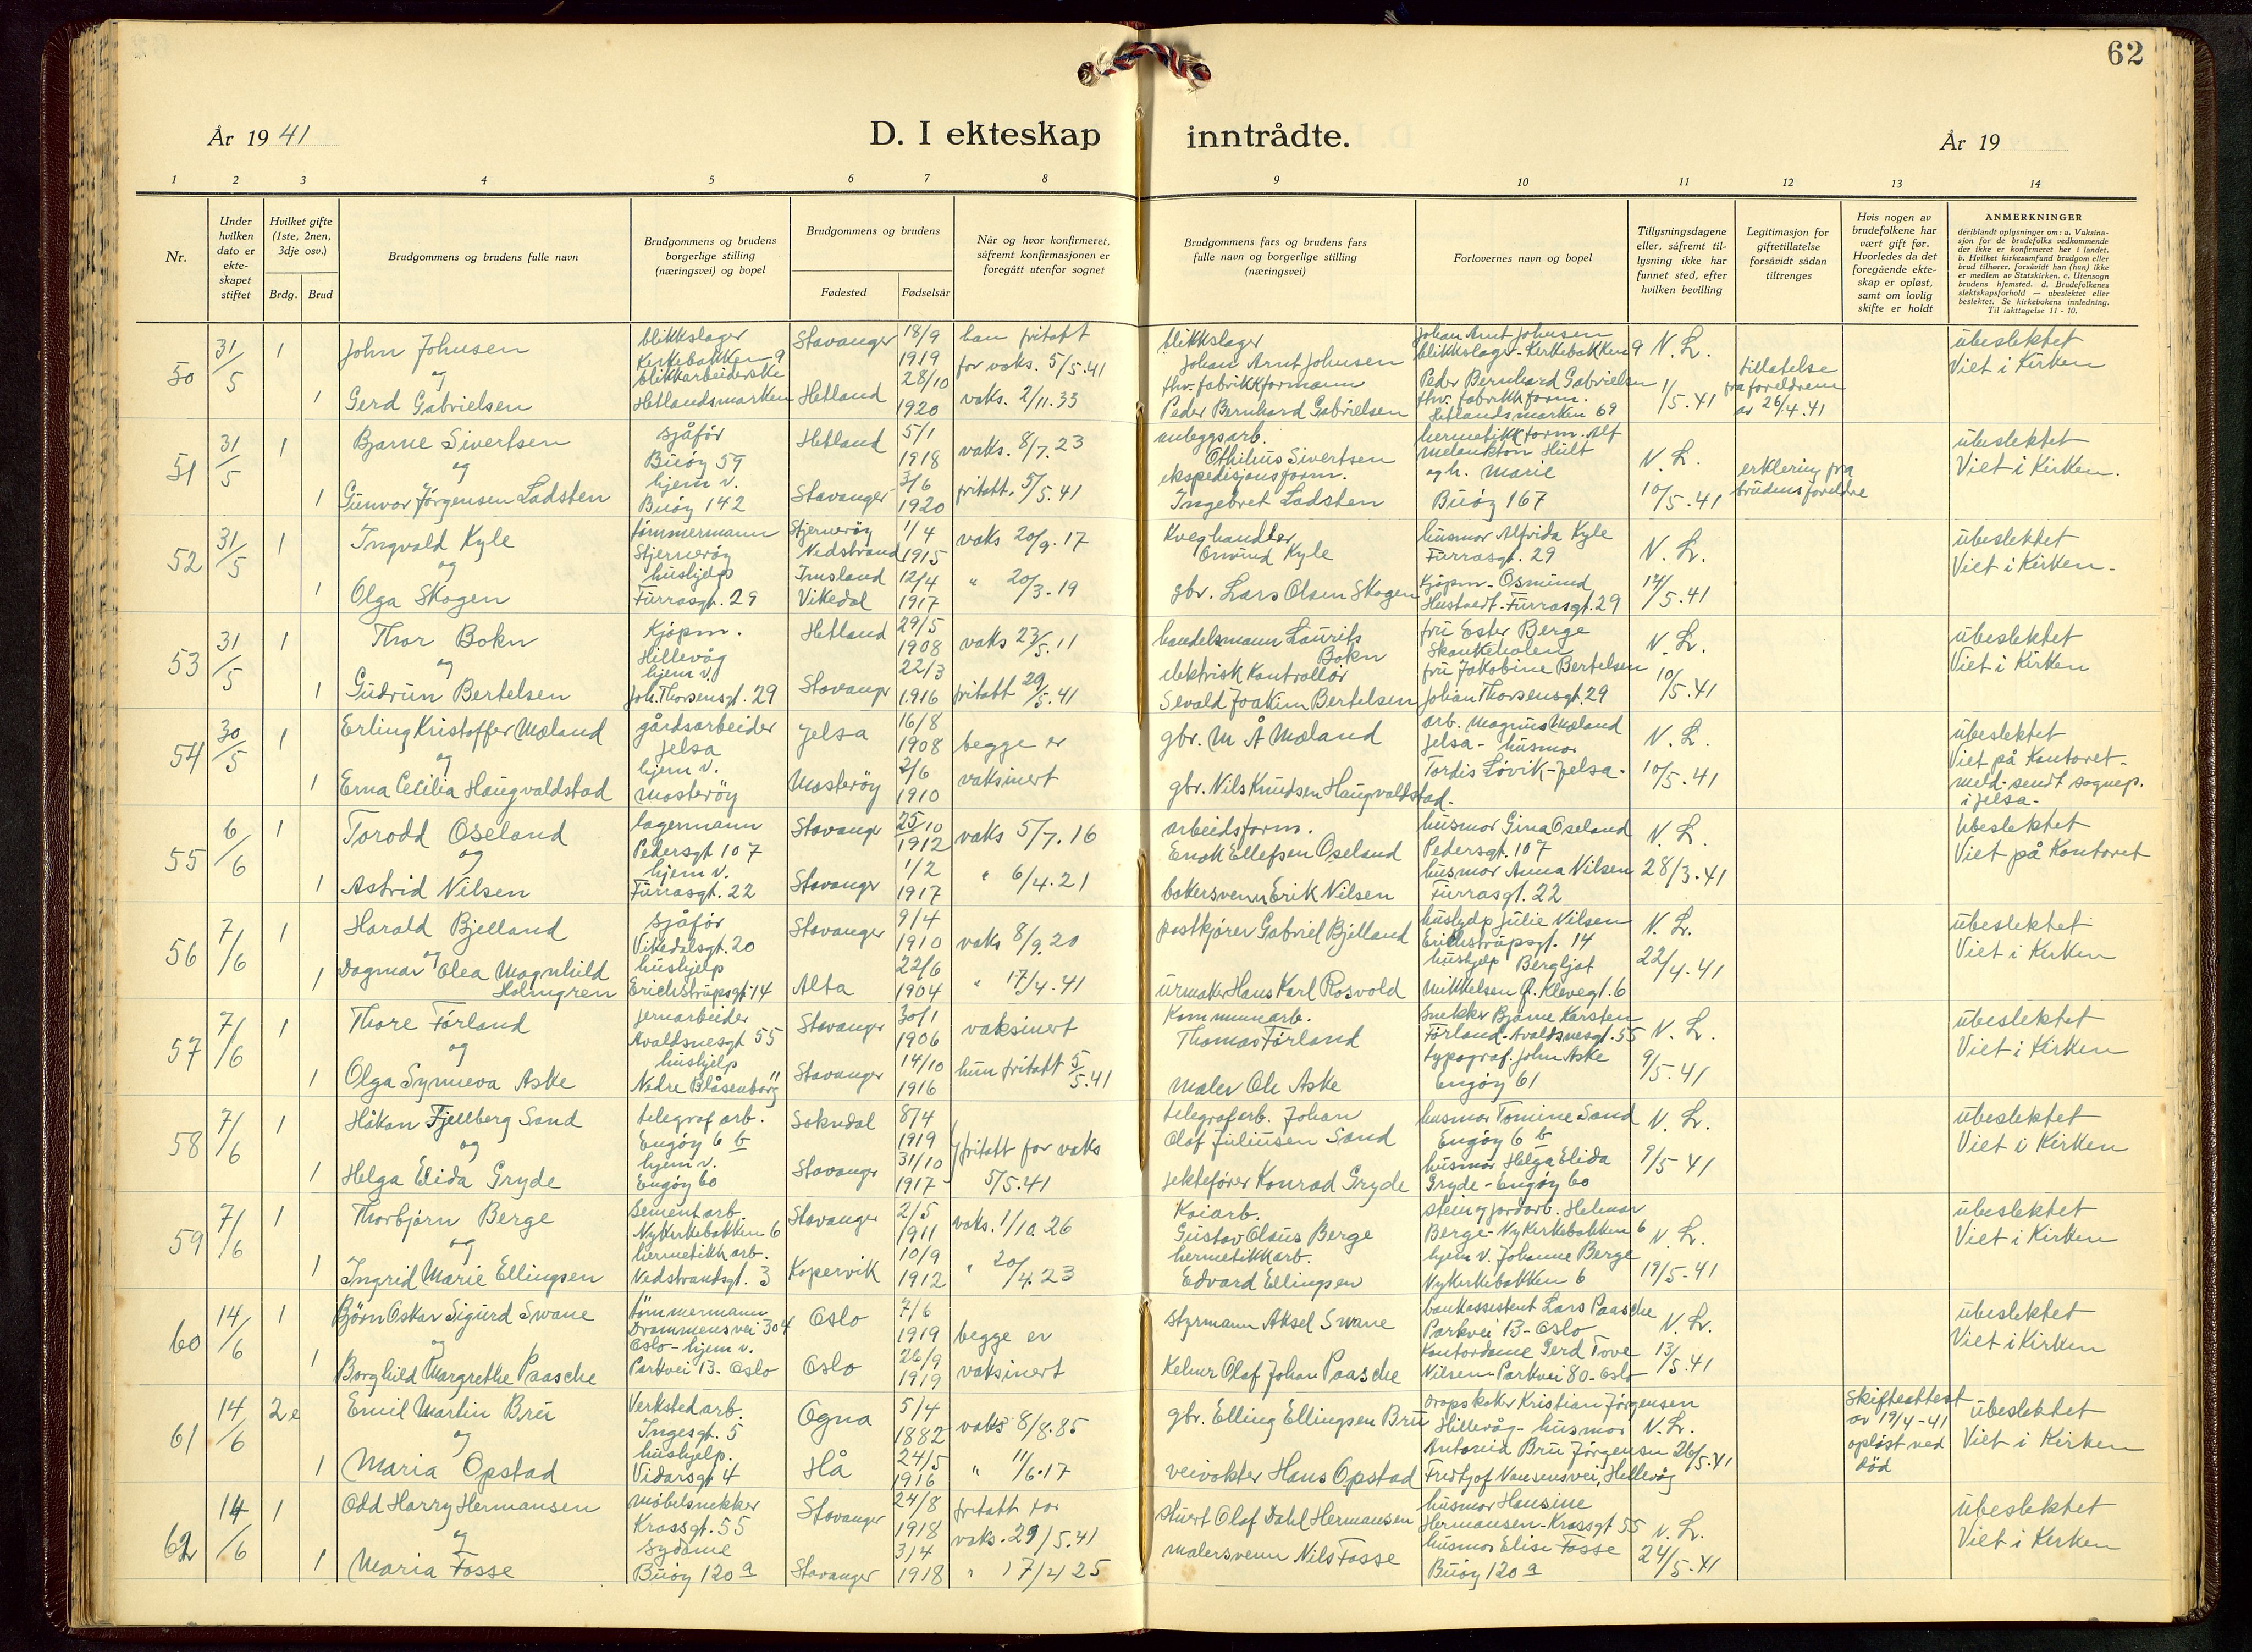 62
År 19 41
D. I ekteskap inntrådte.
År 19
1 2 3 4 5 6 7 8 9 10 11 12 13 14
Nr.
Under hvilken dato er ekte-skapet stiftet
Hvilket gifte (1ste, 2nen, 3dje osv.)
Brdg. Brud
Brudgommens og brudens fulle navn
Brudgommens og brudens borgerlige stilling (næringsvei) og bopel
Brudgommens og brudens
Fødested Fødselsår
Når og hvor konfirmeret, såfremt konfirmasjonen er foregått utenfor sognet
Brudgommens fars og brudens fars fulle navn og borgerlige stilling (næringsvei)
Forlovernes navn og bopel
Tillysningsdagene eller, såfremt til-lysning ikke har funnet sted, efter hvilken bevilling
Legitimasjon for giftetillatelse forsåvidt sådan tiltrenges
Hvis nogen av brudefolkene har vært gift før. Hvorledes da det foregående ekte-skap er opløst, samt om lovlig skifte er holdt
ANMERKNINGER
deriblandt oplysninger om: a. Vaksina-sjon for de brudefolks vedkommende der ikke er konfirmeret her i landet. b. Hvilket kirkesamfund brudgom eller brud tilhører, forsåvidt han (hun) ikke er medlem av Statskirken. c. Utensogn brudens hjemsted. d. Brudefolkenes slektskapsforhold — ubeslektet eller beslektet. Se kirkebokens innledning. Til iakttagelse 11 - 10.
50 31/5 1 John Johnsen blikkslager Kirkebakken 9 Stavanger 18/9 1919 han fritatt for vaks. 5/5.41 blikkslager Johan Arnt Johnsen Johan Arnt Johnsen blikkslager - Kirkebakken 9 N. L. ubeslektet Viet i Kirken
og
1 Gerd Gabrielsen blikkarbeiderske Hetlandsmarken Hetland 28/10 1920 vaks. 2/11.33 fhv. fabrikkformann Peder Bernhard Gabrielsen Peder Bernhard Gabrielsen fhv. fabrikkform. Hetlandsmarken 69 1/5.41 tillatelse fra foreldrene av 26/4.41
51 31/5 1 Bjarne Sivertsen sjåfør Buøy 59 Hetland 5/1 1918 vaks. 8/7.23 anleggsarb. Othilius Sivertsen hermetikkform. Alf Melankton Hult N. L. ubeslektet Viet i Kirken.
og
1 Gunvor Jørgensen Ladsten hjem v. Buøy 142 Stavanger 3/6 1920 fritatt. 5/5.41 ekspedisjonsform. Ingebret Ladsten og h. Marie Buøy 167 10/5.41 erklering fra brudens foreldre
52 31/5 1 Ingvald Kyle tømmermann Stjernerøy Stjernerøy Nedstrand 1/4 1915 vaks 20/9.17 Kveghandler Omund Kyle husmor Alfrida Kyle Furrasgt. 29 N. L. ubeslektet Viet i Kirken-
og
1 Olga Skogen hushjelp Furrasgt. 29 Imsland Vikedal 12/4 1917 " 20/3.19 gbr. Lars Olsen Skogen Kjøpm- Osmund Hustoedt-Furrasgt. 29 12/5.41
53 31/5 1 Thor Bokn Kjøpm. Hillevåg Hetland 29/5 1908 vaks 23/5.11 handelsmann Laurits Bokn fru Ester Berge Skankeholen N. L. ubeslektet Viet i Kirken
og
1 Gudrun Bertelsen hjem v. Joh. Thorsensgt. 29 Stavanger 22/3 1916 fritatt 29/5.41 elektrisk kontrollør Sevald Joakim Bertelsen fru Jakobine Bertelsen Johan Thorsensgt. 29 10/5.41
54 30/5 1 Erling Kristoffer Mæland gårdsarbeider Jelsa Jelsa 16/8 1908 begge er vaksinert gbr. M Å Mæland arb. Magnus Mæland Jelsa - husmor N. L. ubeslektet Viet på Kontoret- meld. sendt sognep. i Jelsa-
og
1 Erna Cecilia Haugvaldstad hjem v. Mosterøy Mosterøy 2/6 1910 gbr. Nils Knudsen Haugvaldstad- Tordis Løvik-Jelsa- 10/5.41
55 6/6 1 Torodd Oseland lagermann Pedersgt 107 Stavanger 25/10 1912 vaks 5/7.16 arbeidsform. Enok Ellefsen Oseland husmor Gina Oseland Pedersgt. 107 N. L. Ubeslektet Viet på Kontoret
og
1 Astrid Nilsen hjem v. Furrasgt. 22 Stavanger 1/2 1917 " 6/4.21 bakersvenn Erik Nilsen husmor Anna Nilsen Furrasgt. 22 28/3.41
56 7/6 1 Harald Bjelland sjåfør Vikedalsgt. 20 Stavanger 9/4 1910 vaks 8/9.20 postkjører Gabriel Bjelland hushjelp Julie Nilsen Erichstrupsgt. 14 N. L. ubeslektet Viet i Kirken
og
1 Dagmar Olea Magnhild Holmgren hushjelp Erichstrupsgt. 14 Alta 22/6 1904 " 17/4.41 urmaker Hans Karl Rosvold hushjelp Bergljot Mikkelsen Ø. Klevegt. 6 22/4.41
57 7/6 1 Thore Førland jernarbeider Avaldsnesgt 55 Stavanger 30/1 1906 vaksinert Kommunearb. Thomas Førland Snekker Bjarne Karsten Førland-Avaldsnesgt. 55 N. L. ubeslektet Viet i Kirken
og
1 Olga Synneva Aske hushjelp Nedre Blåsenborg 11 Stavanger 14/10 1916 hun fritatt 5/5.41 maler Ole Aske typograf. John Aske Engøy 61 9/5.41
58 7/6 1 Håkon Fjellberg Sand telegraf arb. Engøy 6 b Sokndal 8/4 1919 fritatt for vaks 5/5.41 telegrafarb. Johan Olaf Juliusen Sand husmor Tomine Sand Engøy 6 b N. L. ubeslektet Viet i Kirken
og
1 Helga Elida Gryde hjem v. Engøy 60 Stavanger 31/10 1917 jektefører Konrad Gryde husmor Helga Elida Gryde - Engøy 60 9/5 41
59 7/6 1 Thorbjørn Berge sementarb. Nykirkebakken 6 Stavanger 2/5 1911 vaks. 1/10.26 Kaiarb. Gustav Olaus Berge stein og jordarb. Helmar Berge-Nykirkebakken 6 N. L. ubeslektet Viet i Kirken
og
1 Ingrid Marie Ellingsen hermetikkarb. Nedstrandsgt. 3 Kopervik 10/9 1912 " 20/4.23 hermetikkarb. Edvard Ellingsen hjem v. Johanne Berge Nykirkebakken 6 19/5-41
60 14/6 1 Bjørn Oskar Sigurd Swane tømmermann Drammensvei 304 Oslo- Oslo 7/6 1919 begge er vaksinert styrmann Aksel Swane bankassistent Lars Paasche Parkvei 13-Oslo N. L. ubeslektet Viet i Kirken
og
1 Borghild Margrethe Paasche hjem v. Parkvei 13. Oslo Oslo 26/9 1919 Kelner Olaf Johan Paasche Kontordame Gerd Tove Nilsen-Parkvei 80-Oslo 13/5.41
61 14/6 2e Emil Martin Bru Verkstedarb. Ingesgt. 5 Ogna 5/4 1882 vaks 8/8.85 gbr. Elling Ellingsen Bru Kristian Jørgensen Hillevåg- husmor N. L. skifteattest av 19/4-41 opløst ved død ubeslektet Viet i Kirken
og
1 Maria Opstad hushjelp. Vidarsgt 4 Hå 24/5 1916 " 11/6.17 veivokter Hans Opstad Antonia Bru Jørgensen Fridtjof Nansensvei, Hillevåg 26/5.41
62 14/6 1 Odd Harry Hermansen møbelsnekker Krossgt. 55 Stavanger 24/8 1918 fritatt for vaks. 29/5.41 stuert Olaf Dahl Hermansen husmor Hansine Hermansen-Krossgt 55 N. L. ubeslektet Viet i Kirken
og
1 Maria Fosse sydame Buøy 120 a Stavanger 3/4 1918 " 17/4 25 malersvenn Nils Fosse husmor Elise Fosse Buøy 120 a 24/5.41